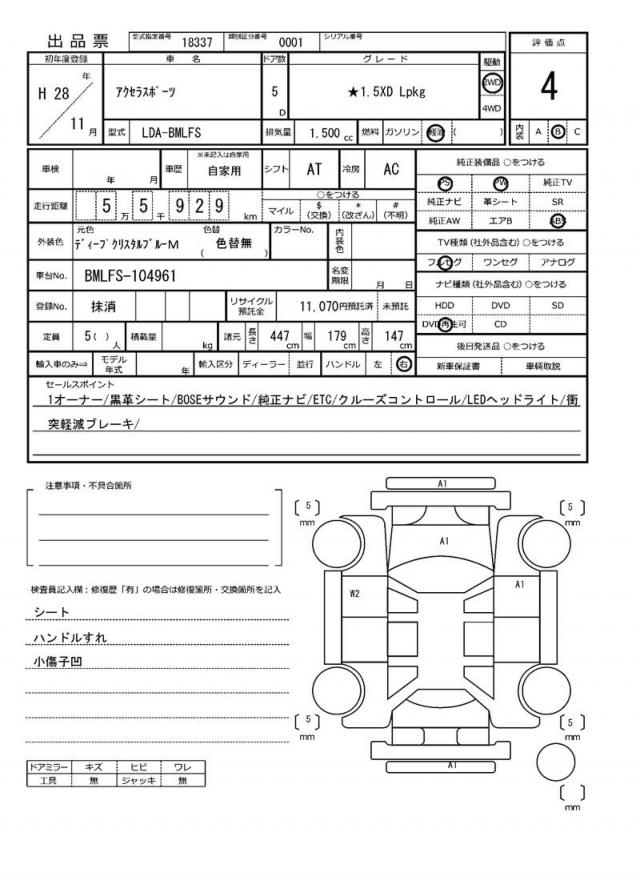 出品票 型式指定番号 18337 類別区分番号 0001 シリアル番号
初年度登録 車名 ドア数 グレード 駆動 評価点
H 28 年 11 月 アクセラスポーツ 5 D ★1.5XD Lpkg 2WD 4WD 4
型式 LDA-BMLFS 排気量 1,500 cc 燃料 ガソリン 軽油 ( ) 内装 A B C
車検 年 月 車歴 ※未記入は自家用 自家用 シフト AT 冷房 AC
走行距離 5 万 5 千 9 2 9 km ○をつける
マイル $(交換) *(改ざん) #(不明)
外装色 元色 ディープクリスタルブルーM 色替 ( 色替無 ) カラーNo. 内装色
車台No. BMLFS-104961 名変期限 月 日
登録No. 抹消 リサイクル預託金 11,070円預託済 未預託
定員 5( ) 人 積載量 kg 諸元 長さ 447 cm 幅 179 cm 高さ 147 cm
輸入車のみ⇒ モデル年式 年 輸入区分 ディーラー 並行 ハンドル 左 右
純正装備品 ○をつける
PS PW 純正TV
純正ナビ 革シート SR
純正AW エアB ABS
TV種類(社外品含む)○をつける
フルセグ ワンセグ アナログ
ナビ種類(社外品含む)○をつける
HDD DVD SD
DVD再生可 CD
後日発送品 ○をつける
新車保証書 車輌取説
セールスポイント
1オーナー/黒革シート/BOSEサウンド/純正ナビ/ETC/クルーズコントロール/LEDヘッドライト/衝
突軽減ブレーキ/
注意事項・不具合箇所
検査員記入欄:修復歴「有」の場合は修復箇所・交換箇所を記入
シート
ハンドルすれ
小傷子凹
ドアミラー キズ ヒビ ワレ
工具 無 ジャッキ 無
A1
5 mm 5 mm
A1
W2 A1
5 mm 5 mm
A1
[ ] mm